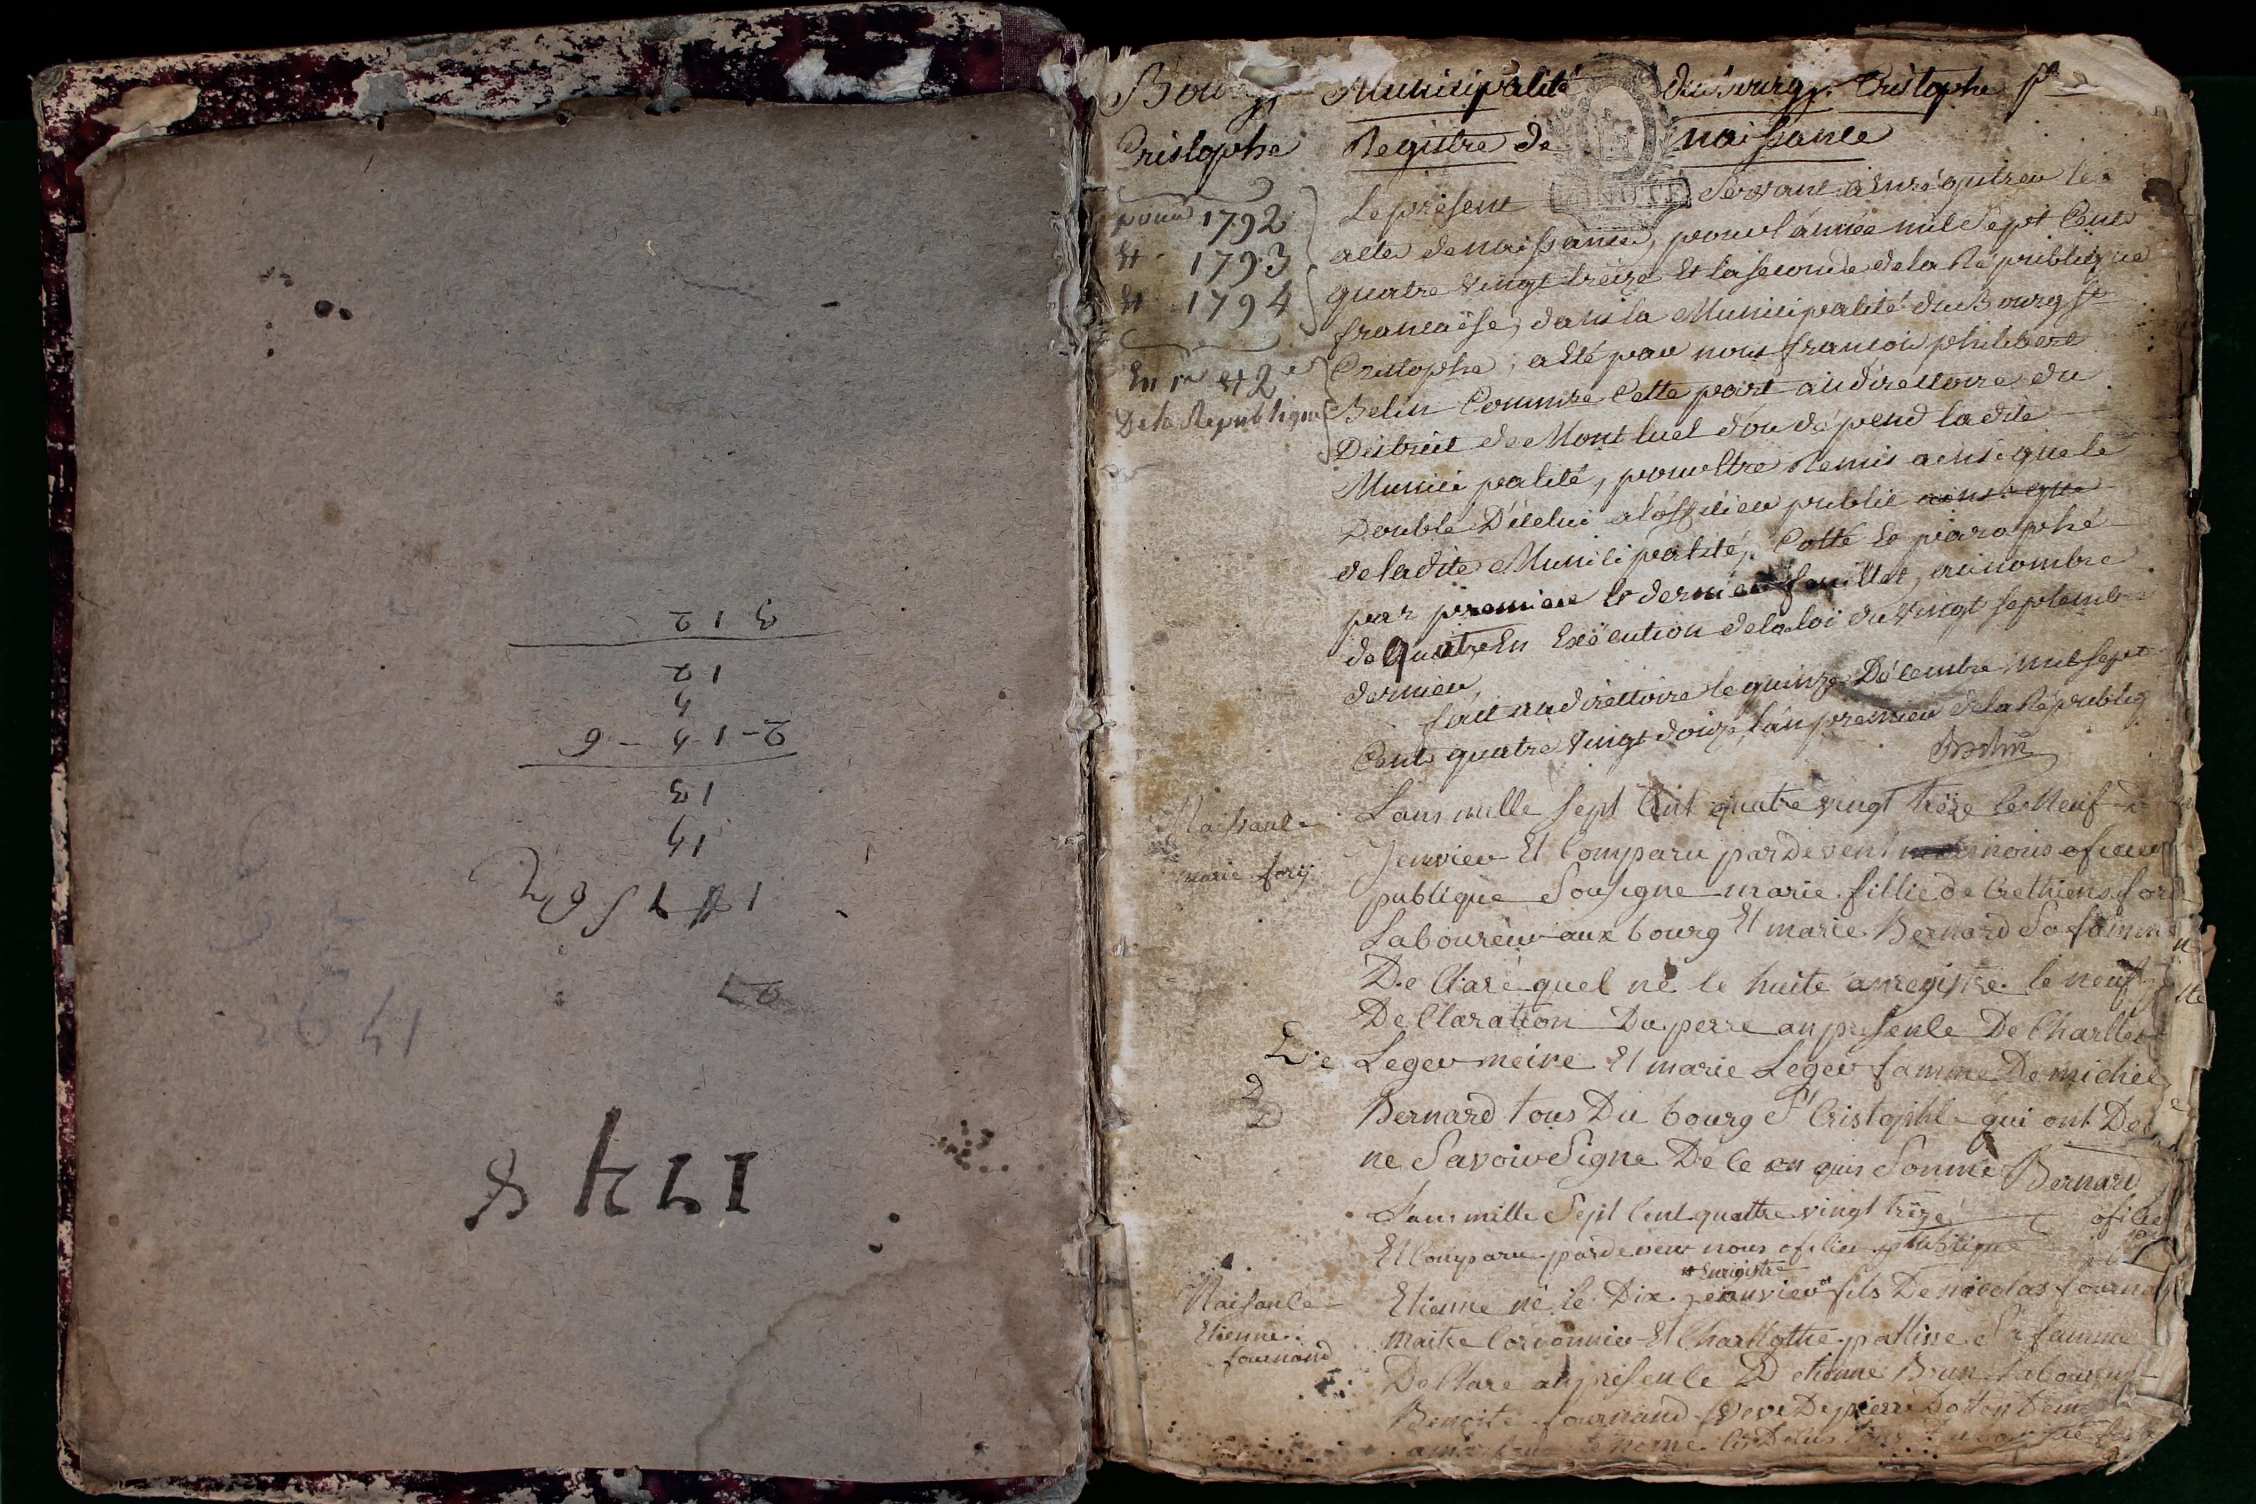 3 12
12
4
2-14-6
13
14
1748
Bourg
Cristophe
pour 1792
Et 1793
Et 1794
En 1re et 2e
De la Republique
Municipalité du Bourg St Cristophe
Registre de naissance
Le présent servant à enrégistrer les
actes de naissance, pour l'année mil sept Cent
quatre vingt treize et la seconde de la République
francaise, dans la Municipalité du Bourg St
Cristophe, a été par nous francois philibert
Belin Commre Cette part au directoire du
District de Montluel d'ou dépend la dite
Municipalité, pour Etre Remis ainsi que le
Double D'icelui a l'officier public ainsi que
de la dite Municipalité, Cotté et paraphé
par premier et dernier feuillet, au nombre
de quatre En Exécution de la loi du vingt septembre
dernier,
fait au directoire le quinze Décembre mil sept
Cent quatre vingt douze, l'an premier de la Républiq
Belin
Naissance
marie forij
Lans mille sept Cent quatre vingt trèze le Neuf
Jenvier Et Comparu pardevent nous oficier
publique Sousigne marie fillie de Crethiens fore
Laboureur aux bourg Et marie Bernard Sa famme
De Claré quel né le huite anregistre le neuf
De Claration Du perre an presence De Charlles
Leger meire Et marie Leger famme De michel
Bernard tous Du bourg St Cristophe qui ont De
ne Savoir Signe De ce en quis Sommé Bernard
oficier
Lans mille Sept Cent quattre vingt trèze
Et Comparu pardever nous oficier publique
Naisance
Etienne
fournand
Enrigistré
Etienne né le Dix jenuvier fils De nicolas fournan
maitre Cordonnier Et Charllotte patlisse Sa famme
De Clare an présence D etienne Brun Laboureur
Benoite fournand veve De pierre Dotton